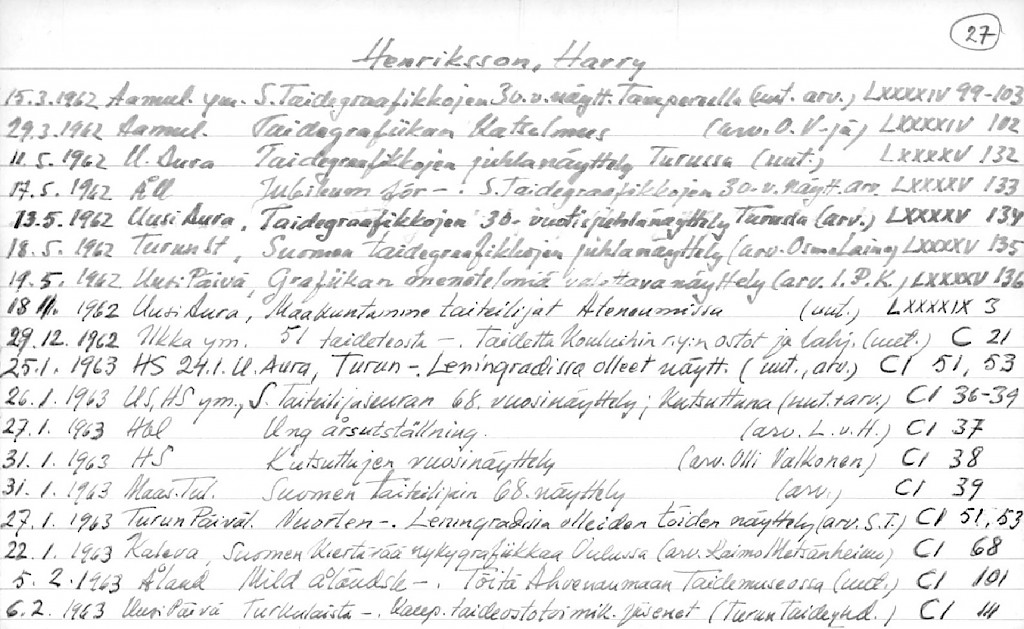 27
Henriksson, Harry
15.3.1962 Aamul. ym. S. Taidegraafikkojen 30.v. näytt. Tampereella (uut. arv.) LXXXXIV 99-103
29.3.1962 Aamul. Taidegrafiikan Katselmus (arv. O.V-jä) LXXXXIV 102
11.5.1962 U. Aura Taidegraafikkojen juhlanäyttely Turussa (uut.) LXXXXV 132
17.5.1962 Åll Jubileum för -. S. Taidegraafikkojen 30-v. näytt. arv. LXXXXV 133
13.5.1962 Uusi Aura, Taidegraafikkojen 30-vuotisjuhlanäyttely Turussa (arv.) LXXXXV 134
18.5.1962 Turunst, Suomen taidegraafikkojen juhlanäyttely (arv. Osmo Laine) LXXXXV 135
19.5.1962 Uusi Päivä, Grafiikan menetelmiä valottava näyttely (arv. I.P.K.) LXXXXV 136
18 11. 1962 Uusi Aura, Maakuntamme taiteilijat Ateneumissa (uut.) LXXXXIX 3
29.12.1962 Ilkka ym. 51 taideteosta -. Taidetta Kouluihin r.y:n ostot ja lahj. (uut.) C 21
25.1.1963 HS 24.1. U. Aura, Turun -. Leningradissa olleet näytt. (uut., arv.) CI 51, 53
26.1.1963 US, HS ym., S. Taiteilijaseuran 68. vuosinäyttely; Kutsuttuna (uut. + arv.) CI 36-39
27.1.1963 Hbl Ung årsutställning. (arv. L.v.H.) CI 37
31.1.1963 HS Kutsuttujen vuosinäyttely (arv. Olli Valkonen) CI 38
31.1.1963 Maas. Tul. Suomen taiteilijain 68. näyttely (arv.) CI 39
27.1.1963 Turun Päiväl. Nuorten -. Leningradissa olleiden töiden näyttely (arv. S.T.) CI 51, 53
22.1.1963 Kaleva, Suomen Kiertävää nykygrafiikkaa Oulussa (arv. Kaimo Metsänheimo) CI 68
5.2.1963 Åland Mild åländsk -. Töitä Ahvenanmaan Taidemuseossa (uut.) CI 101
6.2.1963 Uusi Päivä Turkulaista -. Kaup. taideostotoimik. jäsenet (Turun Taideyhd.) CI 111